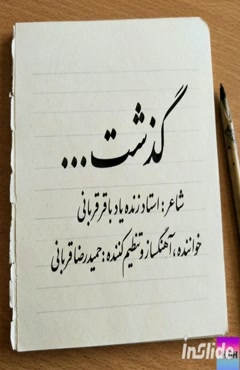 گذشت...
شاعر: استاد زنده یاد باقر قربانی
خواننده، آهنگساز و تنظیم کننده: حمیدرضا قربانی
InSlide